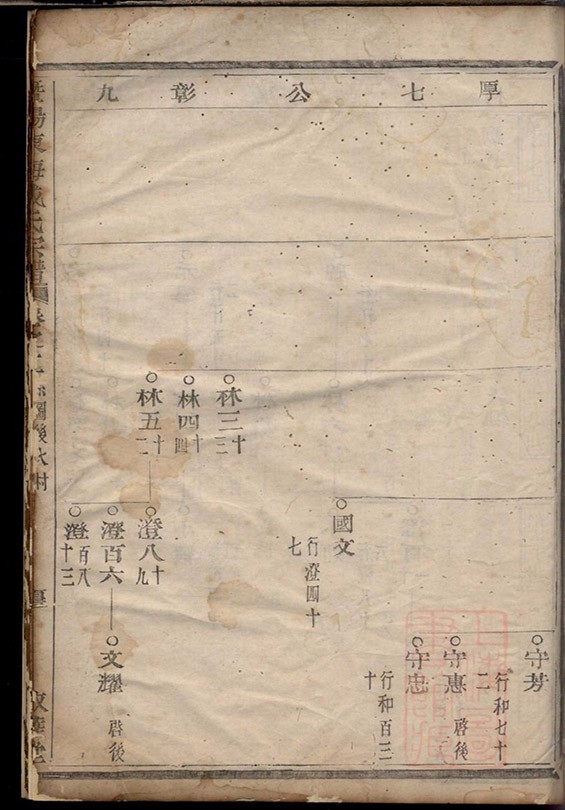 厚七公彰九
守芳
行和七十二
守惠
啓後
守忠
行和百三十
國文
行澄四十七
林三十三
林四十四
林五十二
澄八十九
澄百六
文耀
啓後
澄百八十三